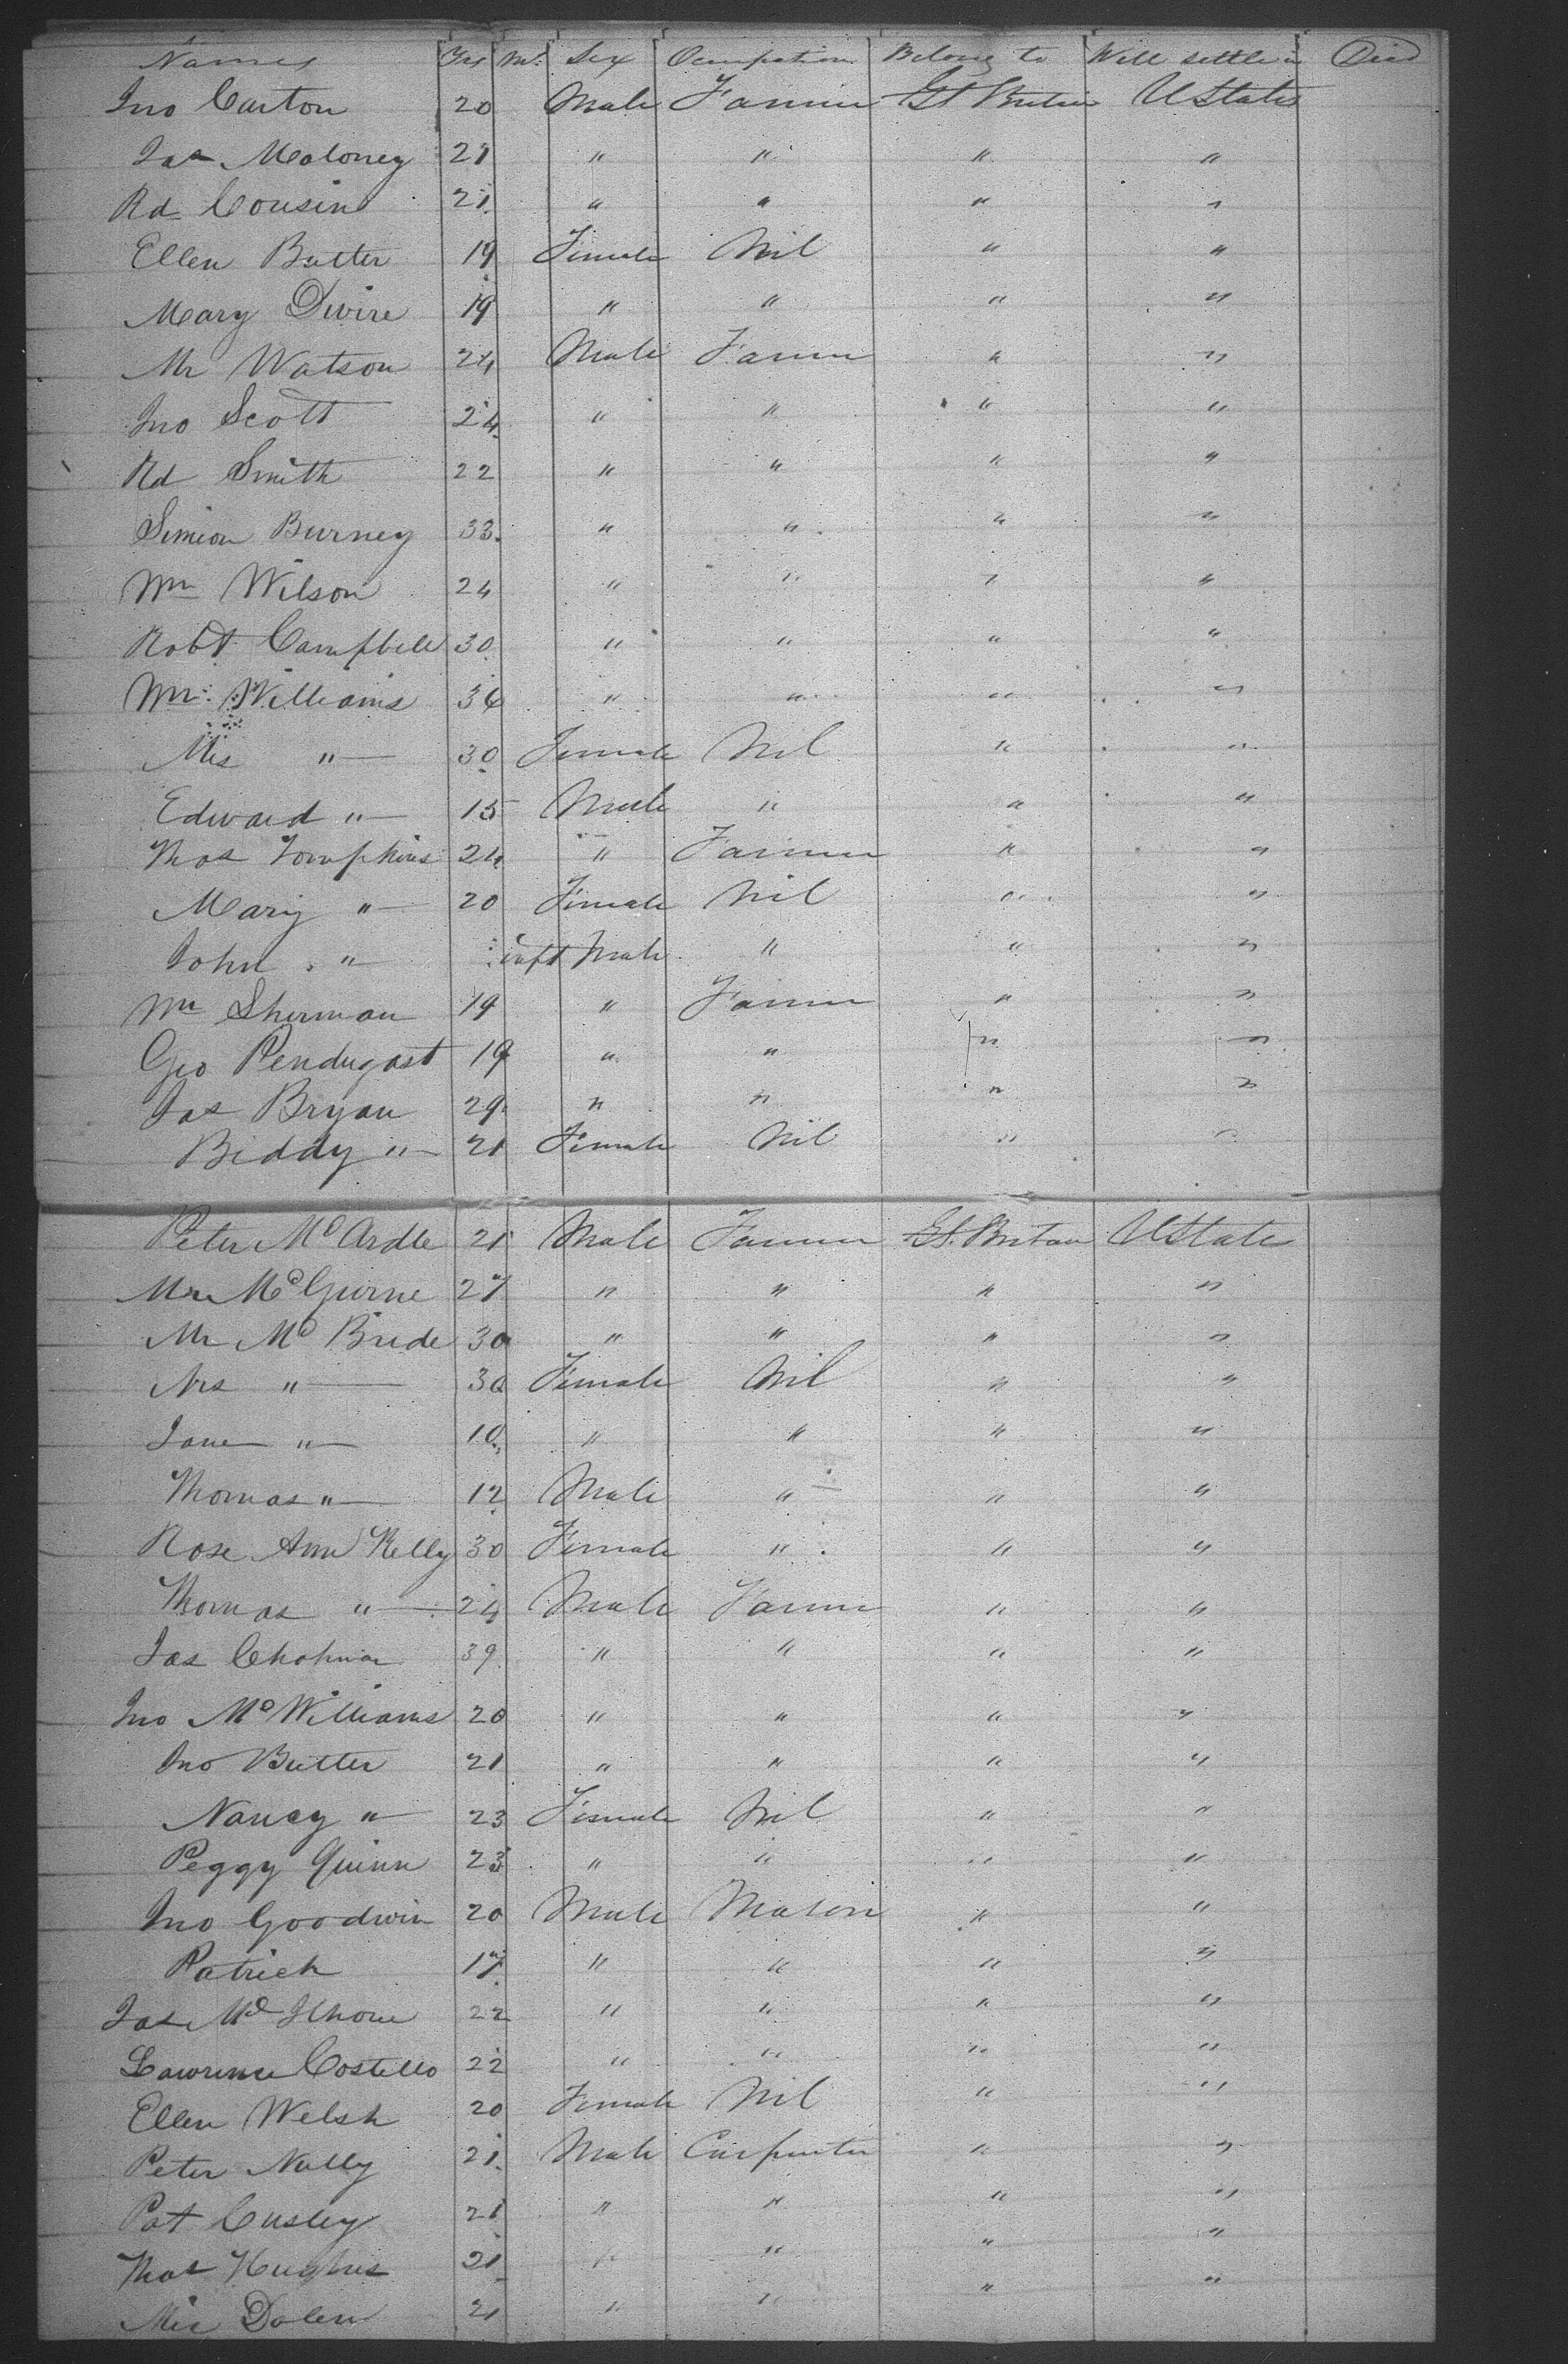 Names Yrs Ms Sex Occupation Belong to Will settle in Died
Jno Carton 20 Male Farmer Gt Britain U States
Jas Moloney 21 " " " "
Rd Cousin 21 " " " "
Ellen Butter 19 Female Nil " "
Mary Divire 19 " " " "
Mr Watson 24 Male Farmer " "
Jno Scott 24 " " " "
Rd Smith 22 " " " "
Simion Burney 33 " " " "
Wm Wilson 24 " " " "
Robt Campbell 30 " " " "
Mr Williams 36 " " " "
Mrs " 30 Female Nil " "
Edward " 15 Male " " "
Thos Tompkins 24 " Farmer " "
Mary " 20 Female Nil " "
John " inft Male " " "
Wm Sherman 19 " Farmer " "
Geo Pendugast 19 " " " "
Jas Bryan 29 " " " "
Biddy " 21 Female Nil " "
Peter McArdle 21 Male Farmer Gt. Britain U State
Mr McGurne 27 " " " "
Mr McBride 30 " " " "
Mrs " 30 Female Nil " "
Jane " 10 " " " "
Thomas " 12 Male " " "
Rose Ann Kelly 30 Female " " "
Thomas " 24 Male Farmer " "
Jas 39 " " " "
Jno McWilliams 20 " " " "
Jno Butter 21 " " " "
Nancy " 23 Female Nil " "
Peggy Quinn 23 " " " "
Jno Goodwin 20 Male Mason " "
Patrick 17 " " " "
Jas 22 " " " "
Lawrence Costello 22 " " " "
Ellen Welsh 20 Female Nil " "
Peter Nally 21 Male Carpenter " "
Pat Cusley 21 " " " "
Thos Hughes 21 " " " "
Dolen 21 " " " "